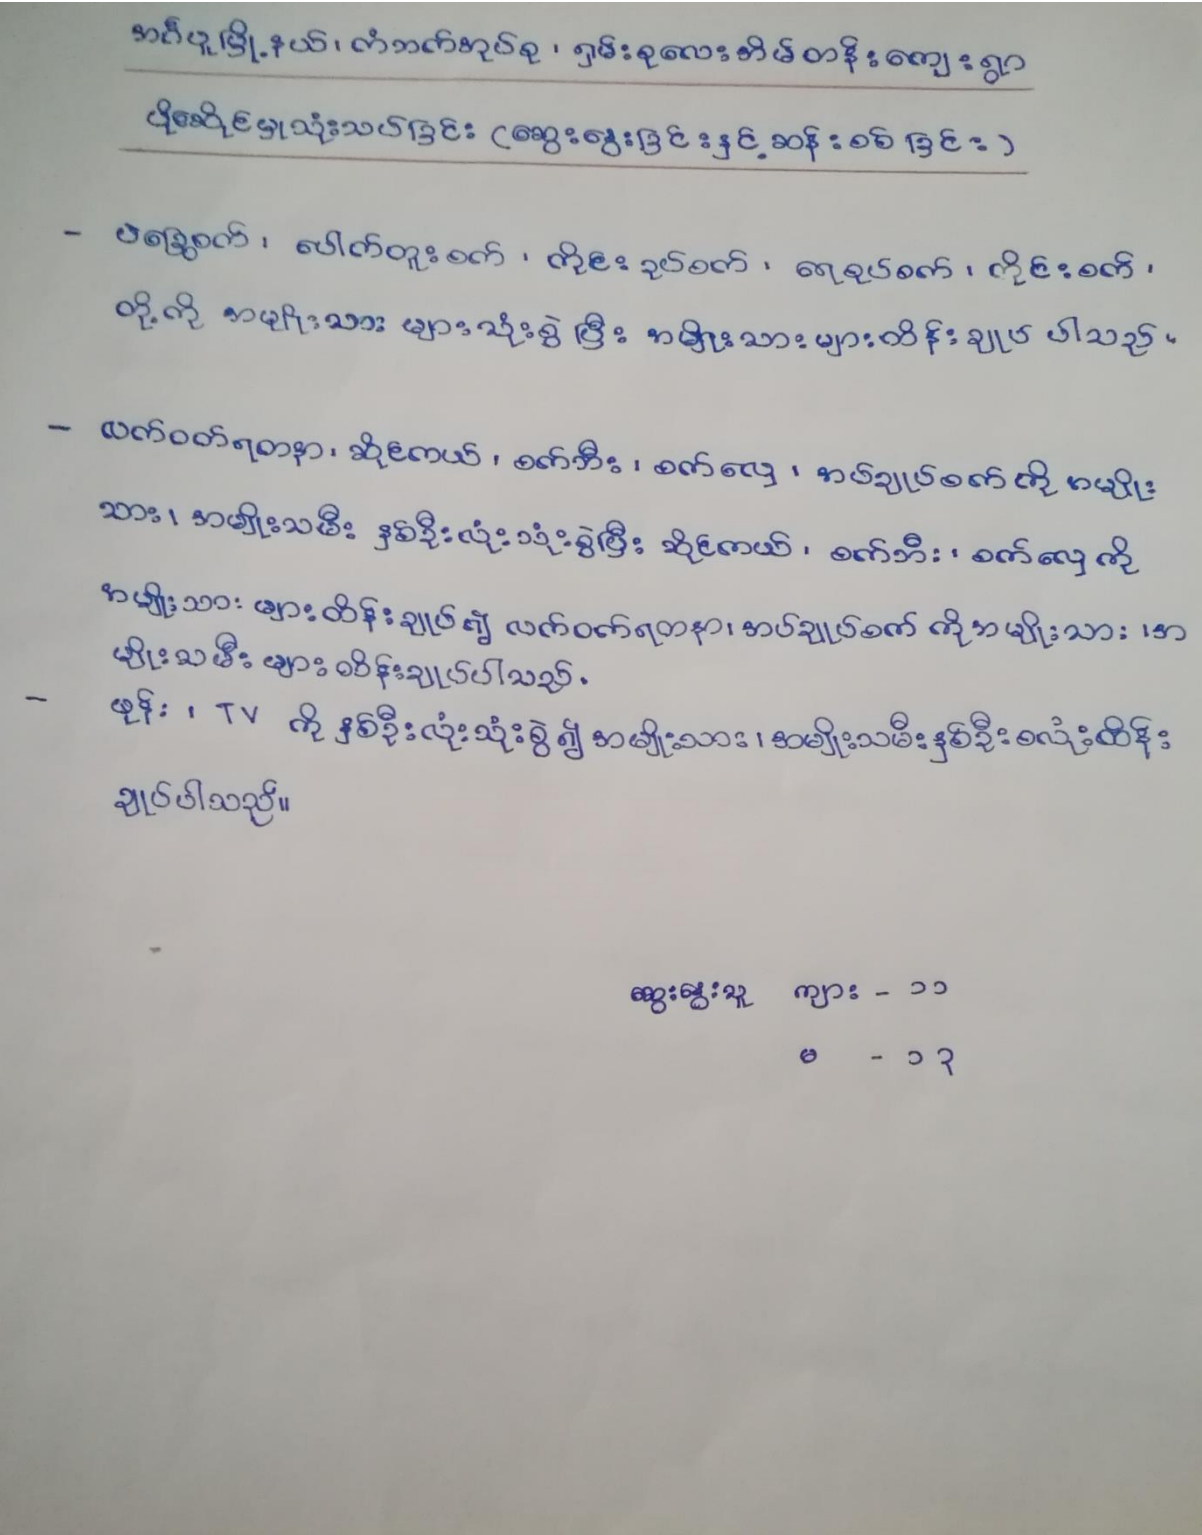 အင်္ဂပူမြို့နယ်၊ ကံဘက်အုပ်စု၊ ရှမ်းစုလေးအိမ်တန်းကျေးရွာ
ပိုင်ဆိုင်မှုသုံးသပ်ခြင်း (ဆွေးနွေးခြင်းနှင့်ဆန်းစစ်ခြင်း)
- ပဲခြွေစက်၊ ပေါက်တူးစက်၊ ကိုင်းခုပ်စက်၊ ရေစုပ်စက်၊ ကိုင်းစက်၊
တို့ကို အမျိုးသား များသုံးစွဲပြီး အမျိုးသားများထိန်းချုပ်ပါသည်။
- လက်ဝတ်ရတနာ၊ ဆိုင်ကယ်၊ စက်ဘီး၊ စက်လှေ၊ အပ်ချုပ်စက်ကို အမျိုး
သား၊ အမျိုးသမီး နှစ်ဦးလုံးသုံးစွဲပြီး ဆိုင်ကယ်၊ စက်ဘီး၊ စက်လှေကို
အမျိုးသား များထိန်းချုပ်၍ လက်ဝတ်ရတနာ၊ အပ်ချုပ်စက် ကိုအမျိုးသား၊ အ
မျိုးသမီး များထိန်းချုပ်ပါသည်။
- ဖုန်း၊ TV ကို နှစ်ဦးလုံးသုံးစွဲ၍ အမျိုးသား၊ အမျိုးသမီးနှစ်ဦးစလုံးထိန်း
ချုပ်ပါသည်။
ဆွေးနွေးသူ ကျား - ၁၁
မ - ၁၃